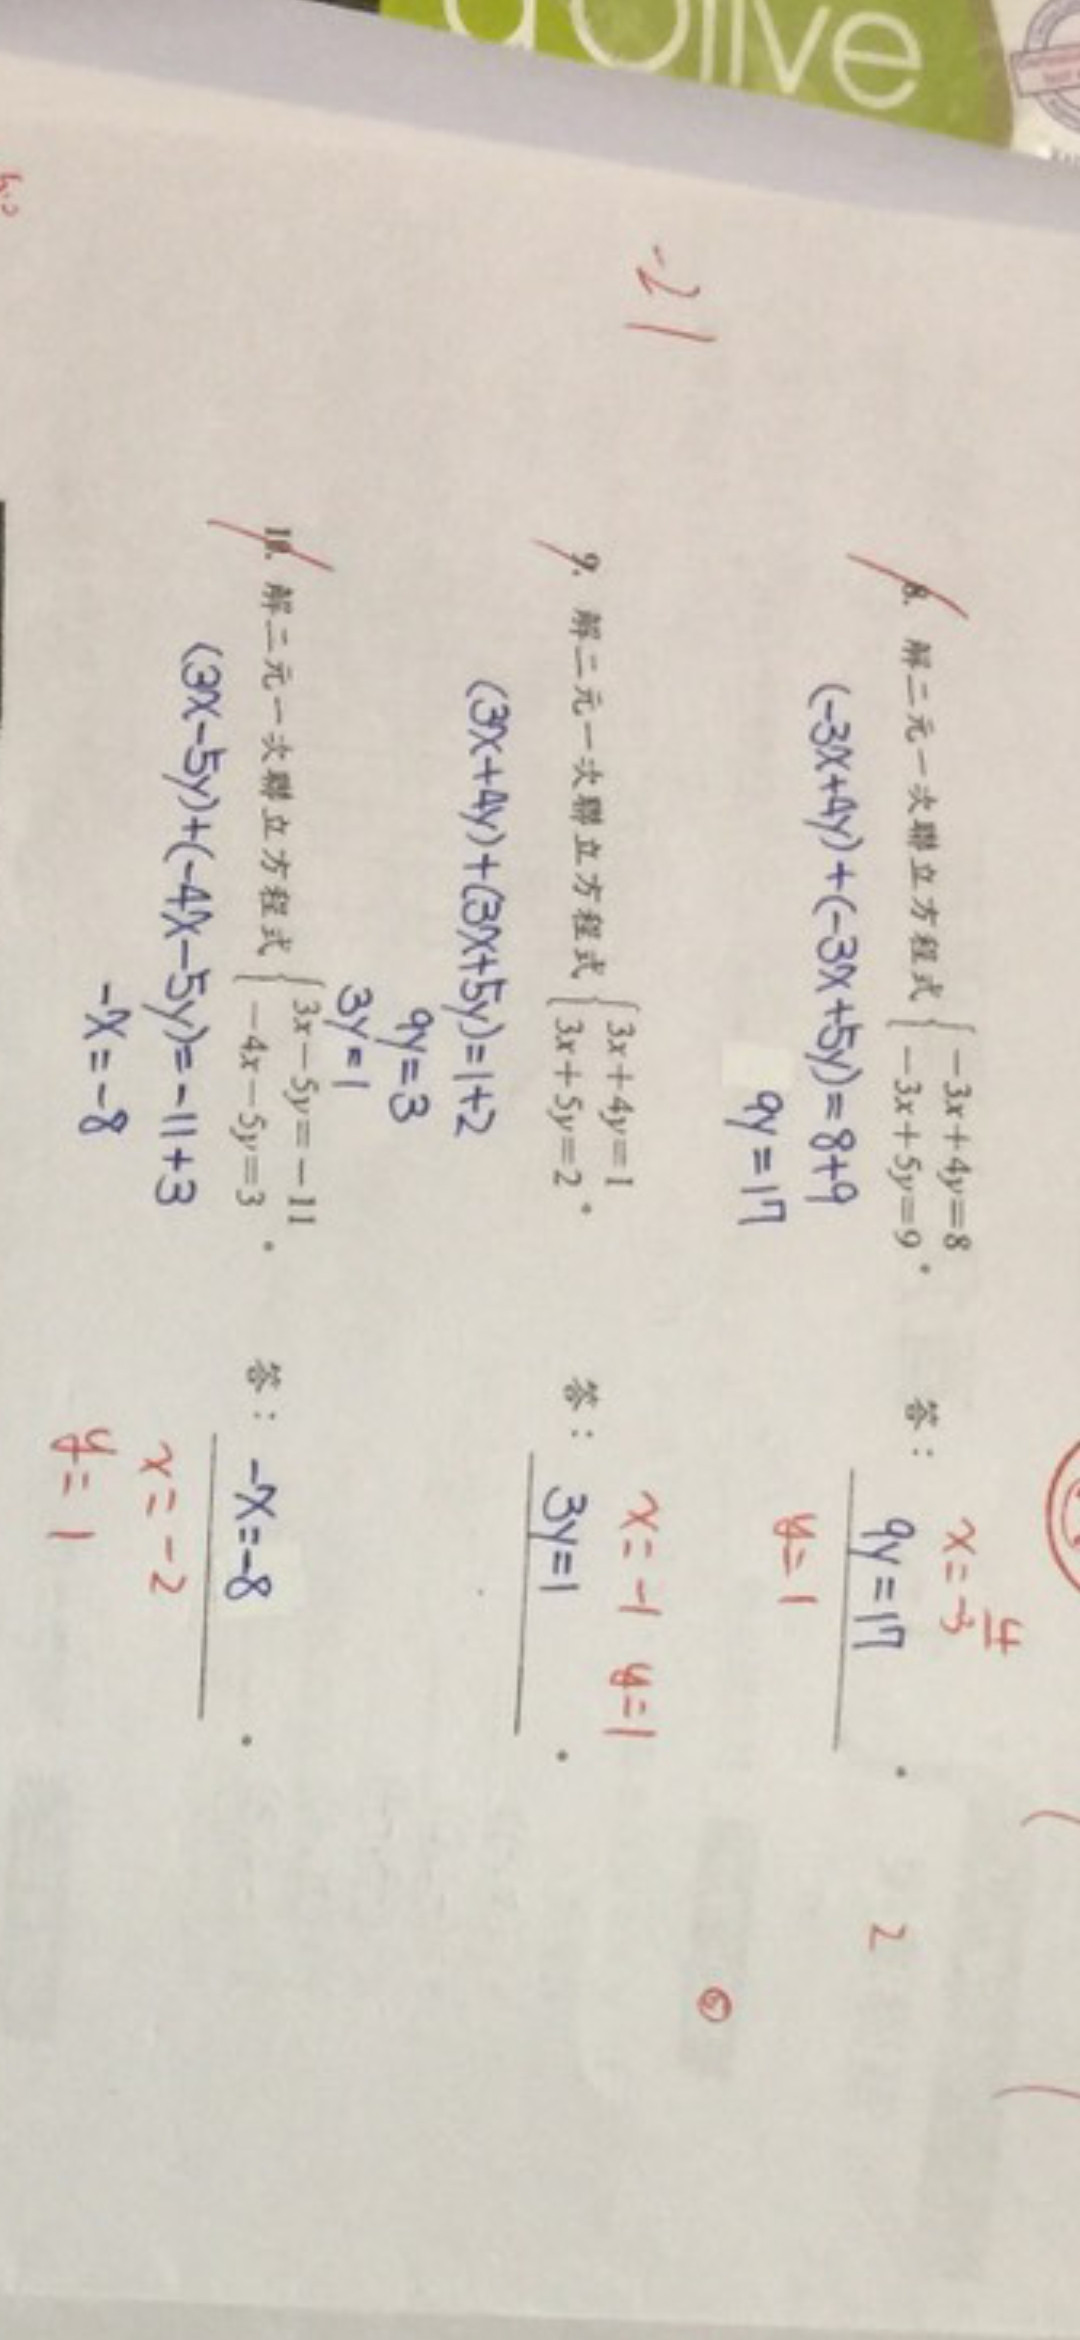 olive
-21
8. 解二元一次聯立方程式 { -3x+4y=8
-3x+5y=9 。
答： 9y=17 。
x=-3 4
y=1
2
(-3x+4y)+(-3x+5y)=8+9
9y=17
⑥
9. 解二元一次聯立方程式 { 3x+4y=1
3x+5y=2 。
答： 3y=1 。
x=-1 y=1
(3x+4y)+(3x+5y)=1+2
9y=3
3y=1
10. 解二元一次聯立方程式 { 3x-5y=-11
-4x-5y=3 。
答： -x=-8 。
x=-2
y=1
(3x-5y)+(-4x-5y)=-11+3
-x=-8